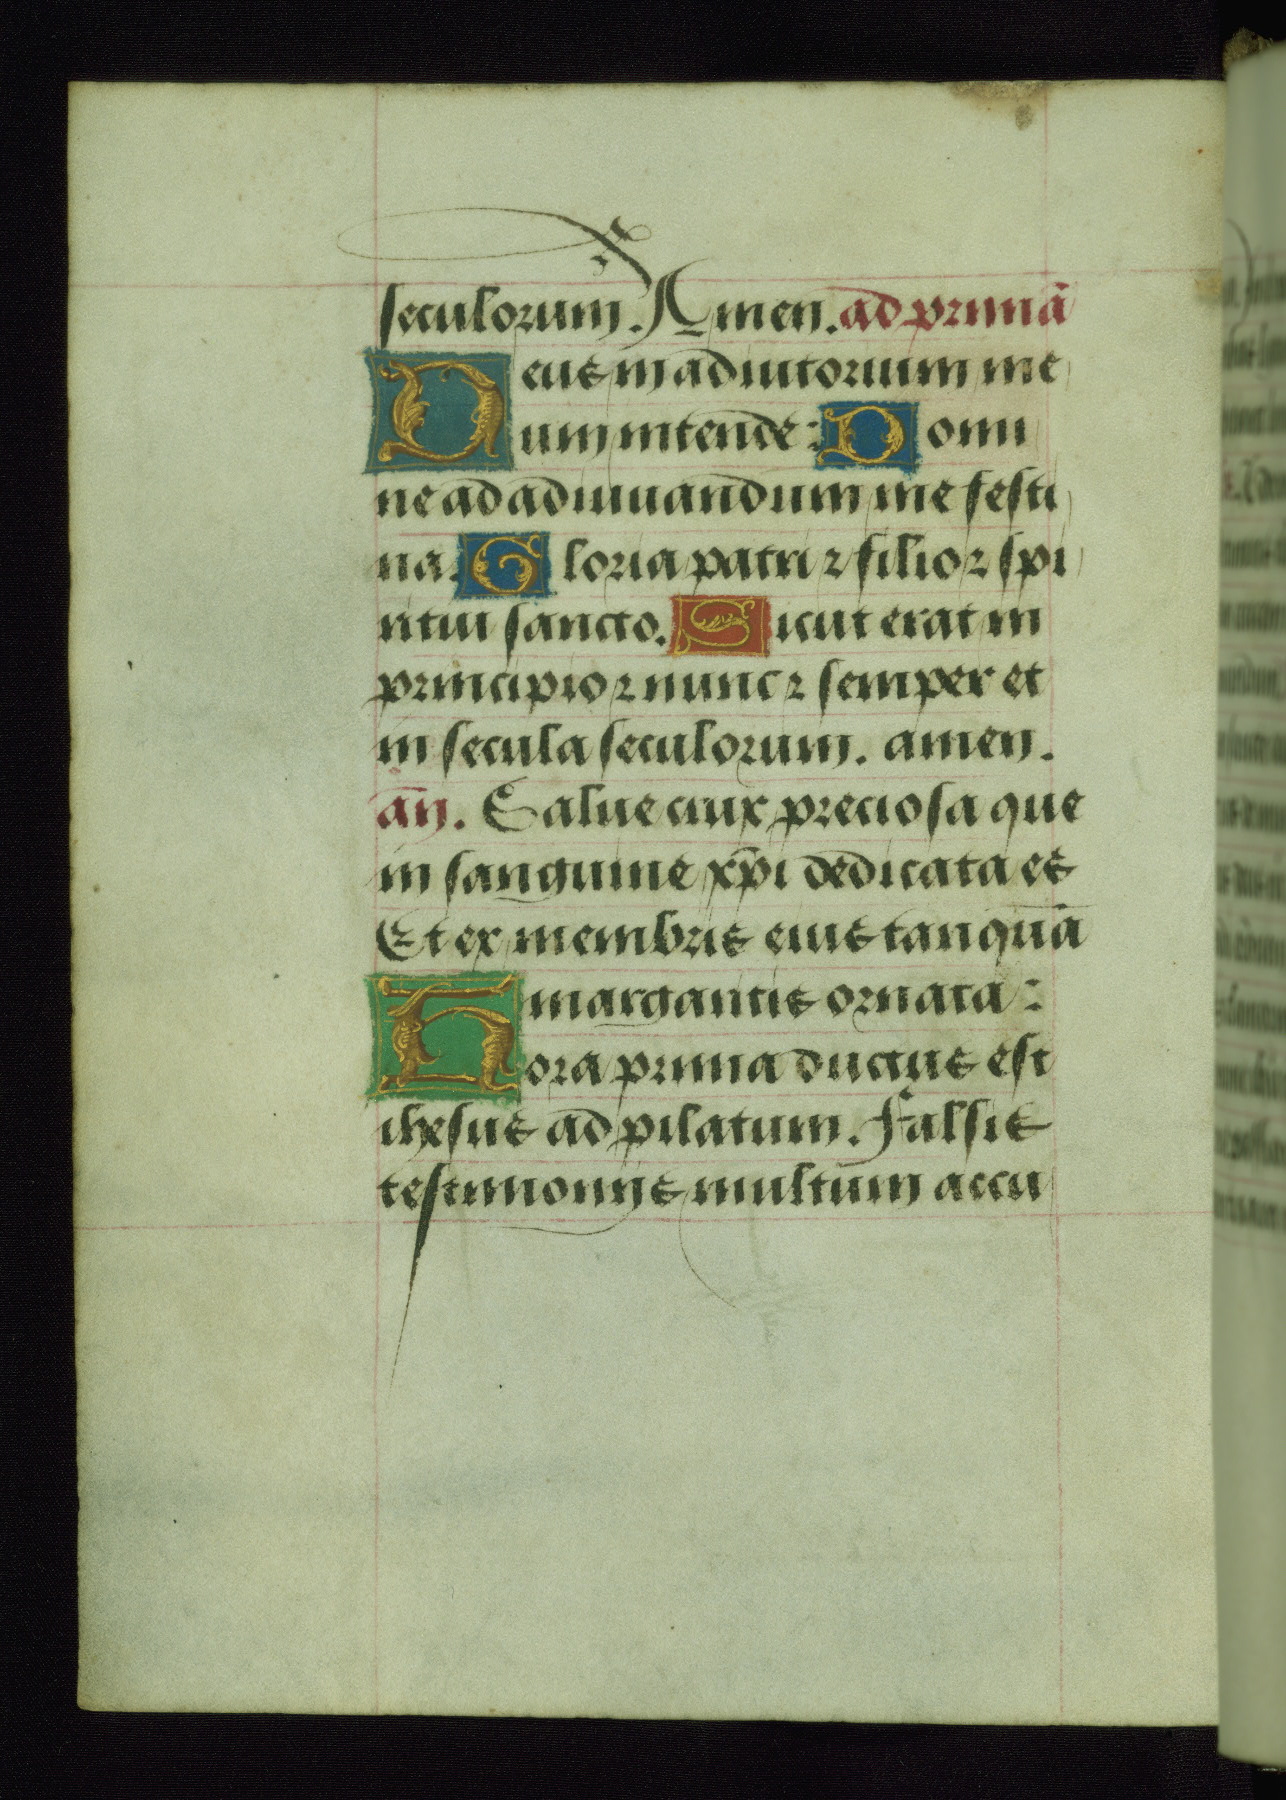 seculorum. Amen. ad primā
Deus in adiutorium me
um intende: Domi
ne ad adiuuandum me festi
na. Gloria patri ⁊ filio ⁊ spi
ritui sancto. Sicut erat in
principio ⁊ nunc ⁊ semper et
in secula seculorum. amen.
an̄. Salue crux preciosa que
in sanguine xp̄i dedicata es
Et ex membris eius tanquā
margaritis ornata:
Hora prima ductus est
ihesus ad pilatum. Falsis
testimoniis multum accu